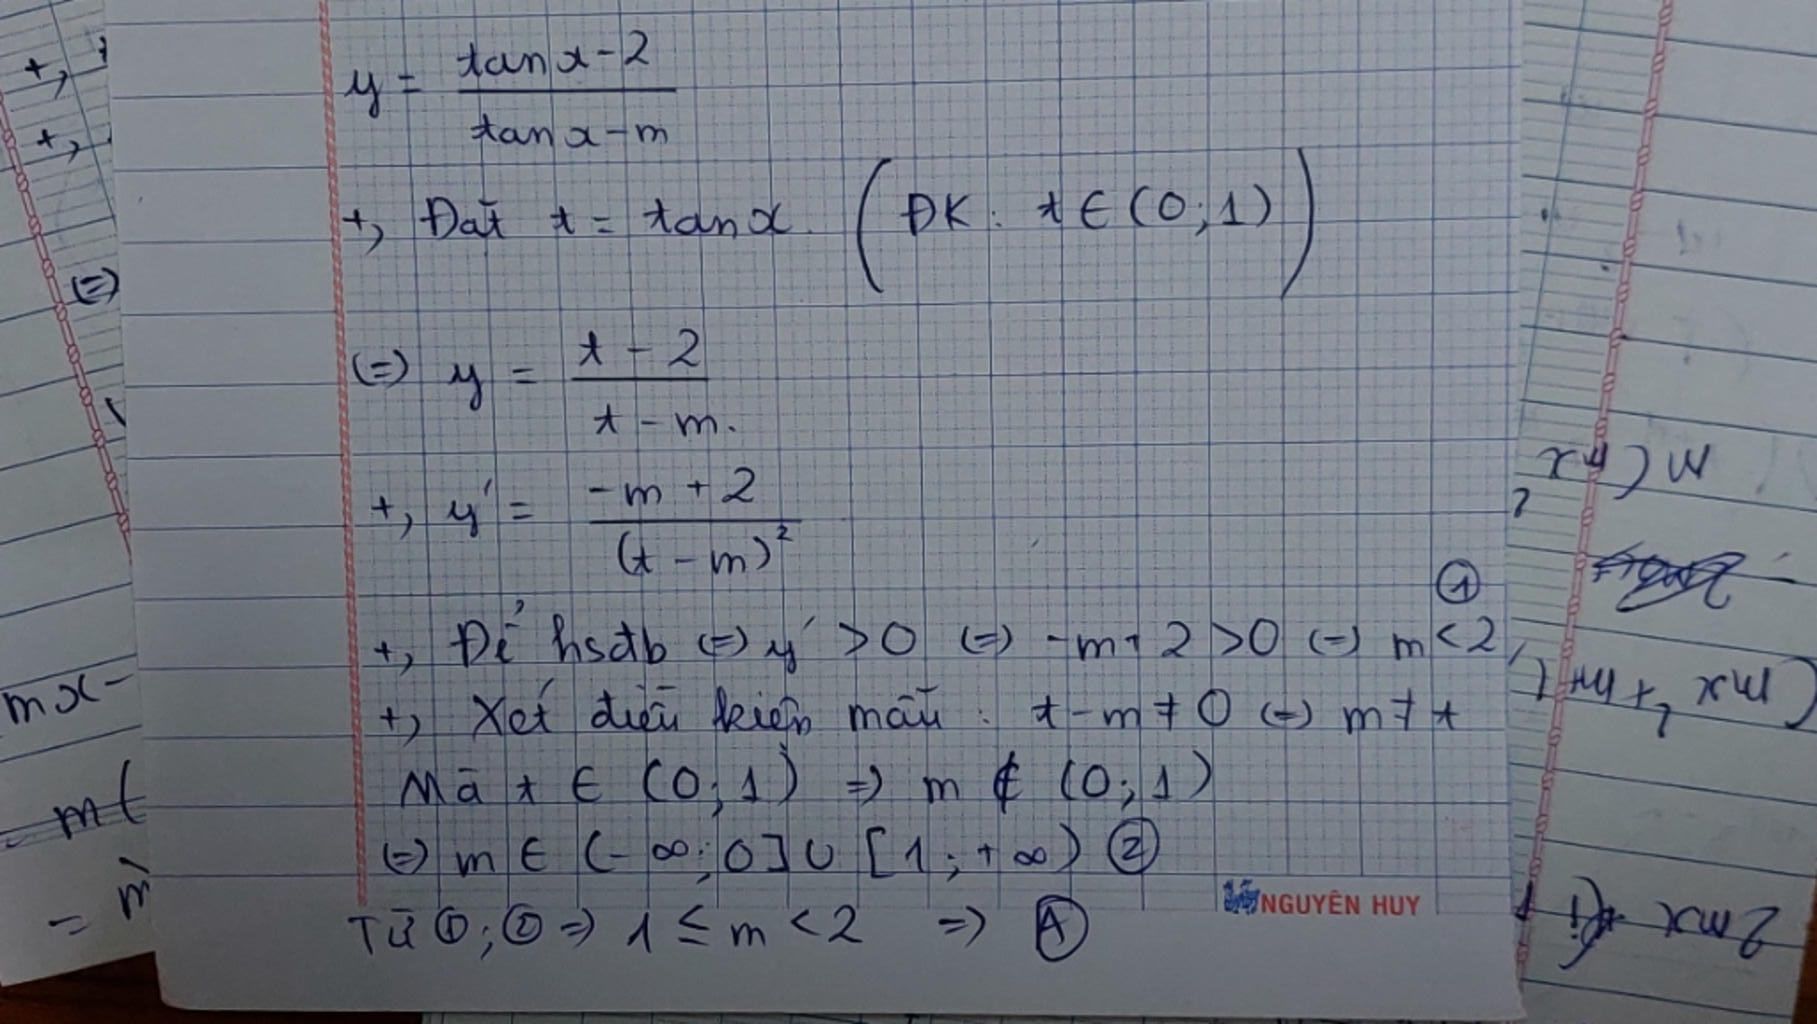 y = (tan x - 2)/(tan x - m)
+, Đặt t = tan x. (ĐK: t ∈ (0;1))
(=) y = (t - 2)/(t - m).
+, y' = (-m + 2)/(t - m)²
+, Để hsđb (=) y' > 0 (=) -m + 2 > 0 (=) m < 2, ①
+, Xét điều kiện mẫu: t - m ≠ 0 (=) m ≠ t
Mà t ∈ (0;1) => m ∉ (0;1)
(=) m ∈ (-∞;0] ∪ [1;+∞) ②
NGUYÊN HUY
Từ ①; ② => 1 ≤ m < 2 => Ⓐ
+,
+,
(=)
mx -
m(
= m